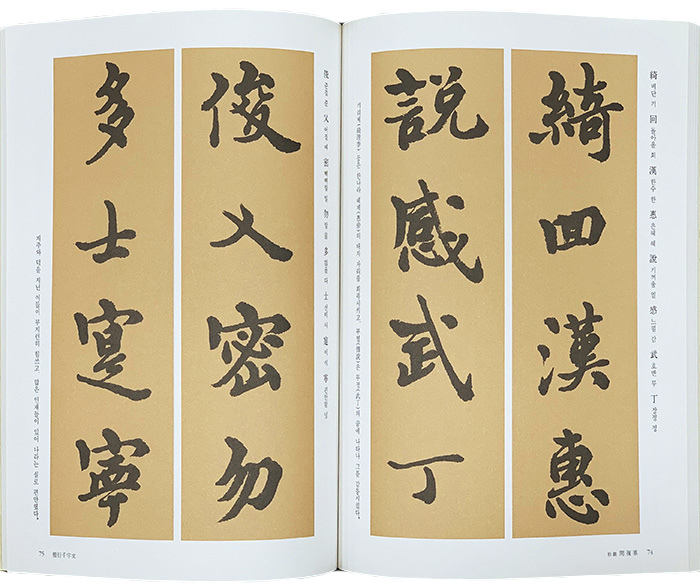 綺 비단 기 回 돌아올 회 漢 한수 한 惠 은혜 혜 說 기꺼울 열 感 느낄 감 武 호반 무 丁 장정 정
綺回漢惠
說感武丁
기리계(綺里季) 등은 한나라 혜제(惠帝)의 태자 자리를 회복시키고, 부열(傅說)은 무정(武丁)의 꿈에 나타나 그를 감동시켰다.
74
俊 준걸 준 乂 어질 예 密 빽빽할 밀 勿 말 물 多 많을 다 士 선비 사 寔 이 식 寧 편안할 녕
俊乂密勿
多士寔寧
재주와 덕을 지닌 이들이 부지런히 힘쓰고, 많은 인재들이 있어 나라는 실로 편안했다.
75 楷行千字文